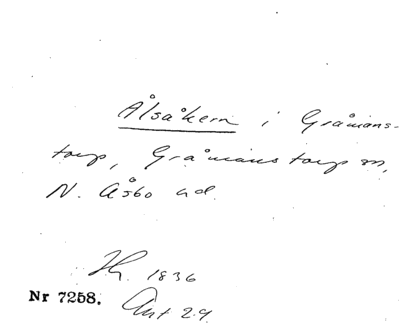 Ålsåkern i Gråmans-
torp, Gråmanstorp sn,
N. Åsbo hd.
Hr. 1836
Nr 7258. Ant 29